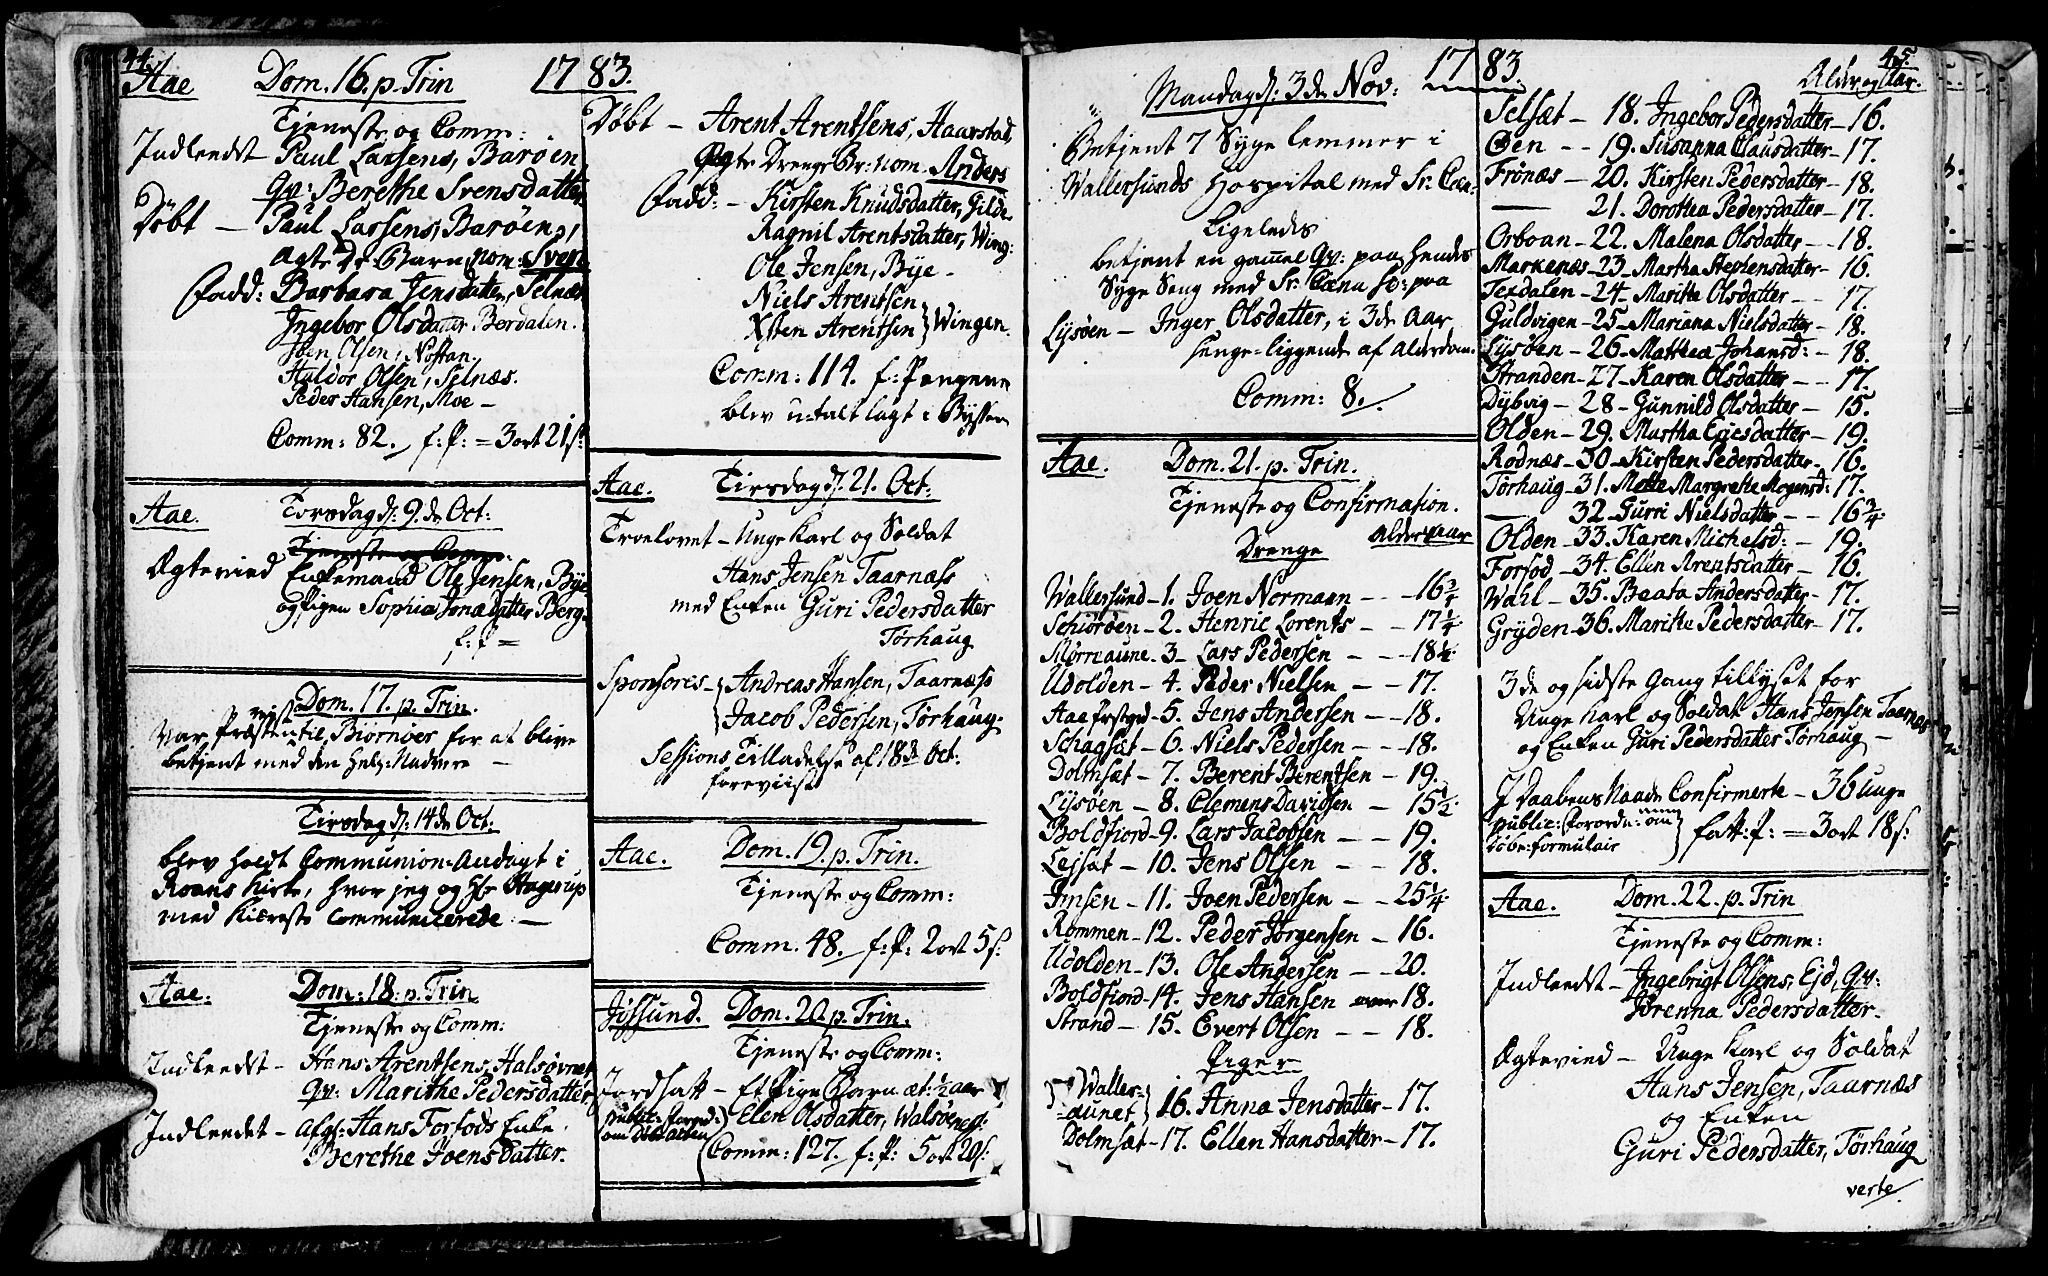 44.
1783.
Aae Dom. 16. p. Trin
Tjeneste og Comm:
Indleedt - Paul Larsens, Barøen
Qv: Berethe Svensdatter
Døbt - Paul Larsens, Barøen,
ægte Dr: Barn nom: Sven
Fadd: Barbara Jensdatter, Selnæs
Ingebor Olsdatter Berdalen.
Iben Olsen, Nøstan.
Haldor Olsen, Selnæs.
Peder Hansen, Moe -
Comm: 82. f: P: = 3 ort 21 s:
Aae. Torsdag d: 9. de Oct:
Tjeneste og Comm:
Ægtevied Enkemand Ole Jensen, Bye
og Pigen Sophia Jonædatter Berg.
f: P =
Dom. 17. p. Trin.
var Præsten reist til Biørnøer for at blive
betjent med den Hel: Nadvere -
Tirsdag d: 14 de Oct:
blev holdt Communion-Andagt i
Roans Kirke, hvor jeg og Hr Hagerup
med Kiæreste communicerede: -
Aae: Dom: 18. p. Trin
Tjeneste og Comm:
Indleedt - Hans Arentsens, Halsøvnet
Qv: Marithe Pedersdatter
Indleedet - afg: Hans Forfods Enke.
Berethe Joensdatter.
Døbt - Arent Arentsens, Haarstad,
ægte Drenge Br: nom. Anders
Fadd: - Kirsten Knudsdatter, Gilde
Ragnil Arentsdatter, Wing:
Ole Jensen, Bye -
Niels Arentsen
Xsten Arentsen } Wingen.
Comm: 114. f: Pengene
blev u-talt lagt i Byssen
Aae. Tirsdag d: 21. Oct:
Troelovet - Unge Karl og Soldat
Hans Jensen Taarnæss
med Enken Guri Pedersdatter
Tørhaug
Sponsores - Andreas Hansen, Taarnæss
Jacob Pedersen, Tørhaug.
Sessions Tilladelse af 18 de Oct:
foreviist
Aae. Dom. 19. p. Trin.
Tjeneste og Comm:
Comm. 48. f: P: 2 ort 5 s.
Jøssund. Dom. 20. p. Trin.
Tjeneste og Comm:
Jordsatt - Et Pige Barn æt: 1/2 aar
Elen Olsdatter, Walsøeness:
public: forord:
om
Comm: 127. f: P: 5 ort 20 s:
45.
1783.
Mandag d: 3 de Nov:
Betjent 7 Syge Lemmer i
Wallersunds Hospital med Sr: Cæn:
Ligeledes
betjent en gammel Qv: paa hendes
Syge Seng med Sr: Cæna
Lysøen - Inger Olsdatter, i 3 de Aar
senge-liggende af Alderdom.
Comm: 8.
Aae. Dom. 21. p. Trin.
Tjeneste og Confirmation.
Drenge Alders aar
Wallersund - 1. Joen Normann - - 16 3/4
Schiørøen - 2. Henric Lorents - - 17 1/4.
Mørriaune - 3 - Lars Pedersen - - 18 1/2.
Udolden - 4. Peder Nielsen - - 17.
Aae Prstgrd - 5. Jens Andersen - - 18.
Schagsæt - 6. Niels Pedersen - - 18.
Dolmsæt - 7. Berent Berentsen - 19.
Lysøen - 8. Clemens Davidsen - 15 1/2.
Boldfiord - 9. Lars Jacobsen - - 19.
Lejsæt - 10. Jens Olsen - - 18.
Imsen - 11. Joen Pedersen - - 25 1/4.
Rommen - 12. Peder Jørgensen - 16.
Udolden - 13. Ole Andersen - - 20.
Boldfiord - 14. Jens Hansen over 18.
Strand - 15. Evert Olsen - - 18.
Piger
Waller-
aunet } 16. Anna Jensdatter - 17.
Dolmsæt - 17. Ellen Hansdatter - 17.
Alder og Aar.
Selsæt - 18. Ingebor Pedersdatter - 16.
Øen - - 19. Susanna Clausdatter - 17.
Frønæs - 20. Kirsten Pedersdatter - 18.
— 21. Dorothea Pedersdatter - 17.
Orboan - 22. Malena Olsdatter - - 18.
Markenæs - 23 - Martha Stephensdatter - 16.
Texdalen - 24 - Marithe Olsdatter - - 17.
Guldvigen - 25 - Mariana Nielsdatter - 18.
Lysøen - 26 - Matthea Johansd: - 18.
Stranden - 27 - Karen Olsdatter - - 17.
Dybvig - 28 - Gunnild Olsdatter - 15.
Olden - 29. Martha Ericsdatter - 19.
Rødnæs - 30 - Kirsten Pedersdatter - 16.
Tørhaug - 31. Mette Margrethe Mogensd: 17.
— 32 - Gurri Nielsdatter - - 16 3/4.
Olden - 33. Karen Michelsd: - 19.
Forfod - 34. Ellen Arentsdatter - 16.
Wahl - 35. Beata Andersdatter - 17.
Gryden - 36. Marithe Pedersdatter - 17.
3 de og sidste Gang tillyset for
Unge Karl og Soldat Hans Jensen Taarnæs
og Enken Guri Pedersdatter Tørhaug -
I Daabens Naade Confirmerte - 36 unge
public: forordn: om
døbe-formular } fatt: P: = 3 ort 18 s:
Aae. Dom. 22. p. Trin
Tjeneste og Comm:
Indleedt - Ingebrigt Olsens, Ejd, Qv:
Jørenna Pedersdatter -
Ægtevied - Unge Karl og Soldat
Hans Jensen, Taarnæs
og Enken
Guri Pedersdatter, Tørhaug
verte